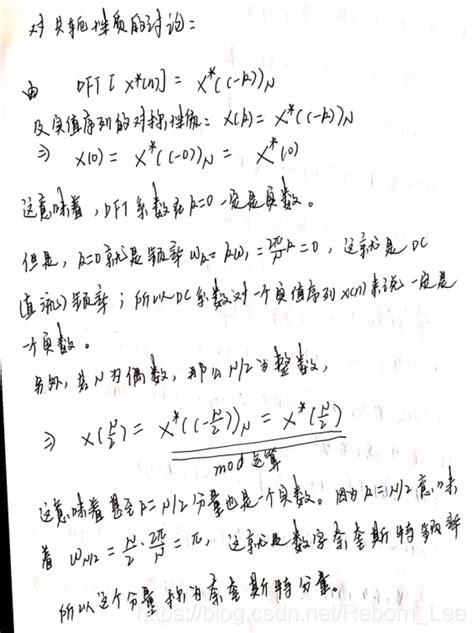 对共轭性质的讨论:
由 DFT[x*(n)] = X*((-k))N
及实值序列的对称性质: X(k) = X*((-k))N
⇒ X(0) = X*((-0))N = X*(0)
这意味着,DFT系数在k=0一定是实数。
但是,k=0就是频率 ωk = kω1 = 2π/N k = 0,这就是DC
(直流)频率;所以DC系数对一个实值序列x(n)来说一定是
一个实数。
另外,若N为偶数,那么N/2为整数,
⇒ X(N/2) = X*((-N/2))N = X*(N/2)
mod运算
这意味着甚至k=N/2分量也是一个实数。因为k=N/2意味
着 ωN/2 = N/2 · 2π/N = π,这就是数字奈奎斯特频率
所以这个分量称为奈奎斯特分量。
https://blog.csdn.net/Reborn_Lee